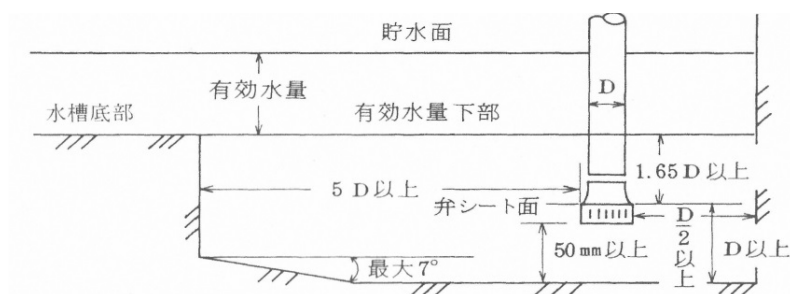 貯水面
有効水量
D
水槽底部
有効水量下部
1.65D以上
5 D以上
弁シート面
D/2以上
50mm以上
D以上
最大7°